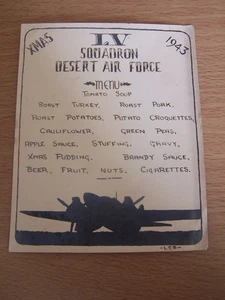 XMAS
LV
1943
SQUADRON
DESERT AIR FORCE
MENU
TOMATO SOUP
ROAST TURKEY, ROAST PORK.
ROAST POTATOES, POTATO CROQUETTES,
CAULIFLOWER, GREEN PEAS,
APPLE SAUCE, STUFFING, GRAVY,
XMAS PUDDING, BRANDY SAUCE,
BEER, FRUIT, NUTS, CIGARETTES.